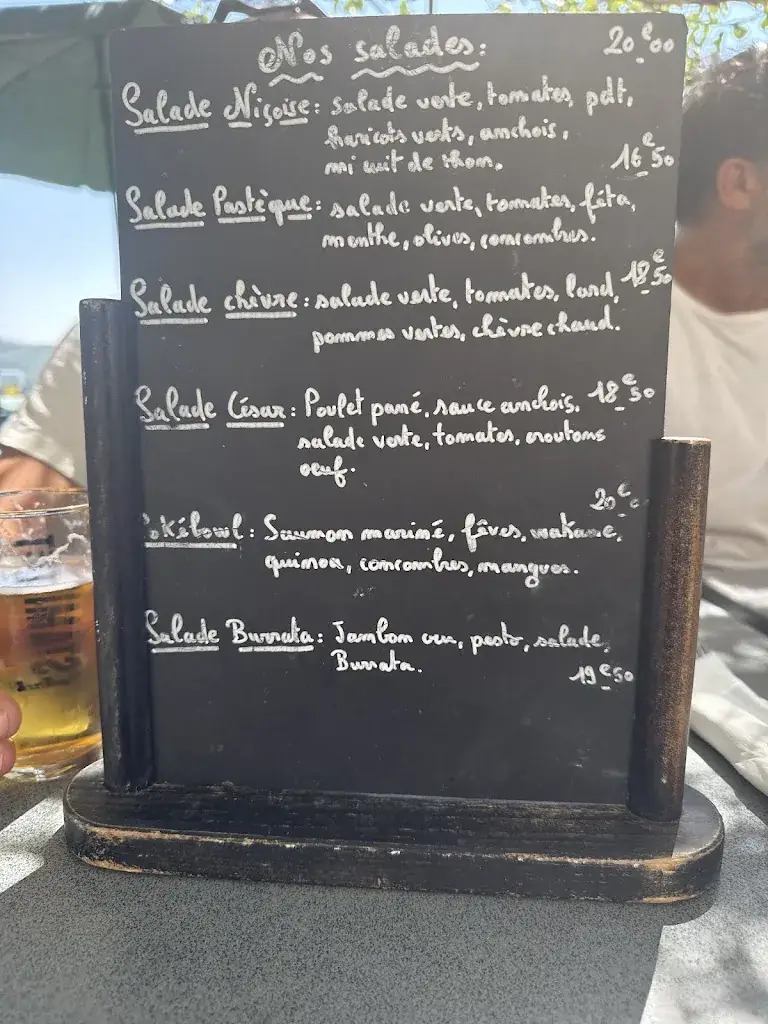 Nos salades: 20€00
Salade Niçoise: salade verte, tomates, pdt,
haricots verts, anchois,
mi cuit de thon. 16€50
Salade Pastèque: salade verte, tomates, fêta,
menthe, olives, concombres.
Salade chèvre: salade verte, tomates, lard, 18€50
pommes vertes, chèvre chaud.
Salade César: Poulet pané, sauce anchois. 18€50
salade verte, tomates, croutons
oeuf.
20€0
okébowl: Saumon mariné, fêves, wakame,
quinoa, concombres, mangues.
Salade Burrata: Jambon cru, pesto, salade,
Burrata. 19€50